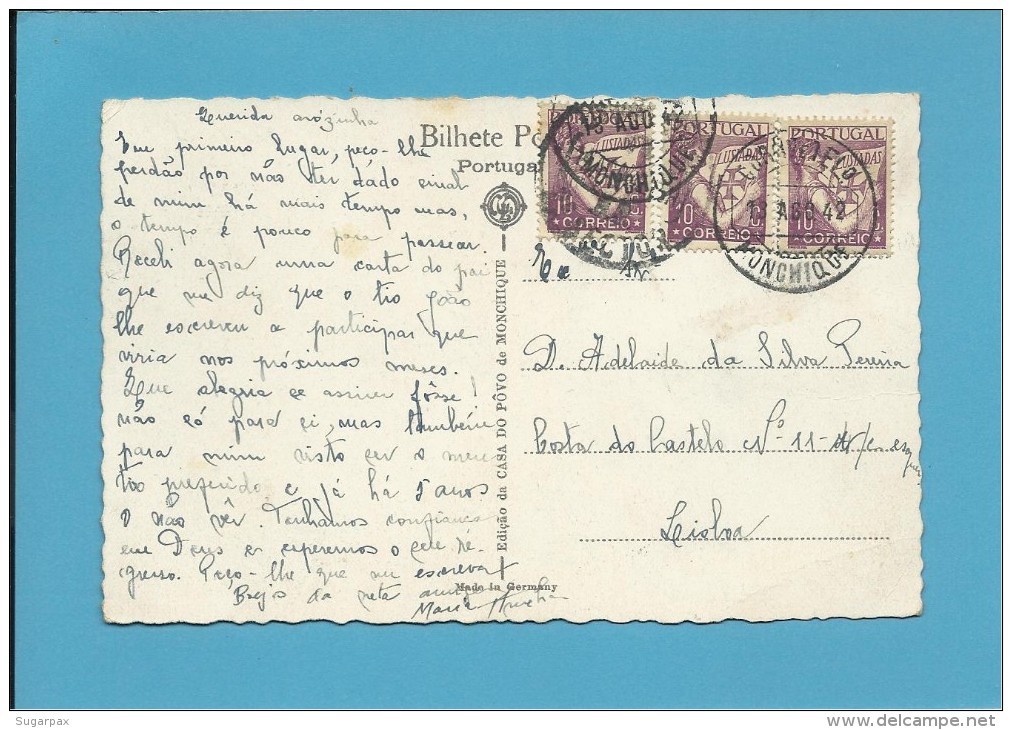 Querida avózinha
Em primeiro lugar, peço-lhe
perdão por não ter dado sinal
de mim há mais tempo mas,
o tempo é pouco para passear.
Recebi agora uma carta do pai
que me diz que o tio João
lhe escreveu a participar que
viria nos próximos meses.
Que alegria se assim fôsse!
não só para si, mas também
para mim visto ser o meu
tio preferido e já há 5 anos
o não vêr. Tenhamos confiança
em Deus e esperemos o seu re-
gresso. Peço-lhe que me escreva
Beijos da neta amiga
Maria
Bilhete Po
Portugal
Edição da CASA DO PÔVO de MONCHIQUE
Made in Germany
PORTUGAL
LUSIADAS
10 C.
CORREIO
PORTUGAL
LUSIADAS
10 C.
CORREIO
PORTUGAL
LUSIADAS
10 C.
CORREIO
AGO 42
MONCHIQUE
AGO 42
MONCHIQUE
Ex
D. Adelaide da Silva Pereira
Costa do Castelo Nº 11-
Lisboa
Sugarpax
www.delcampe.net